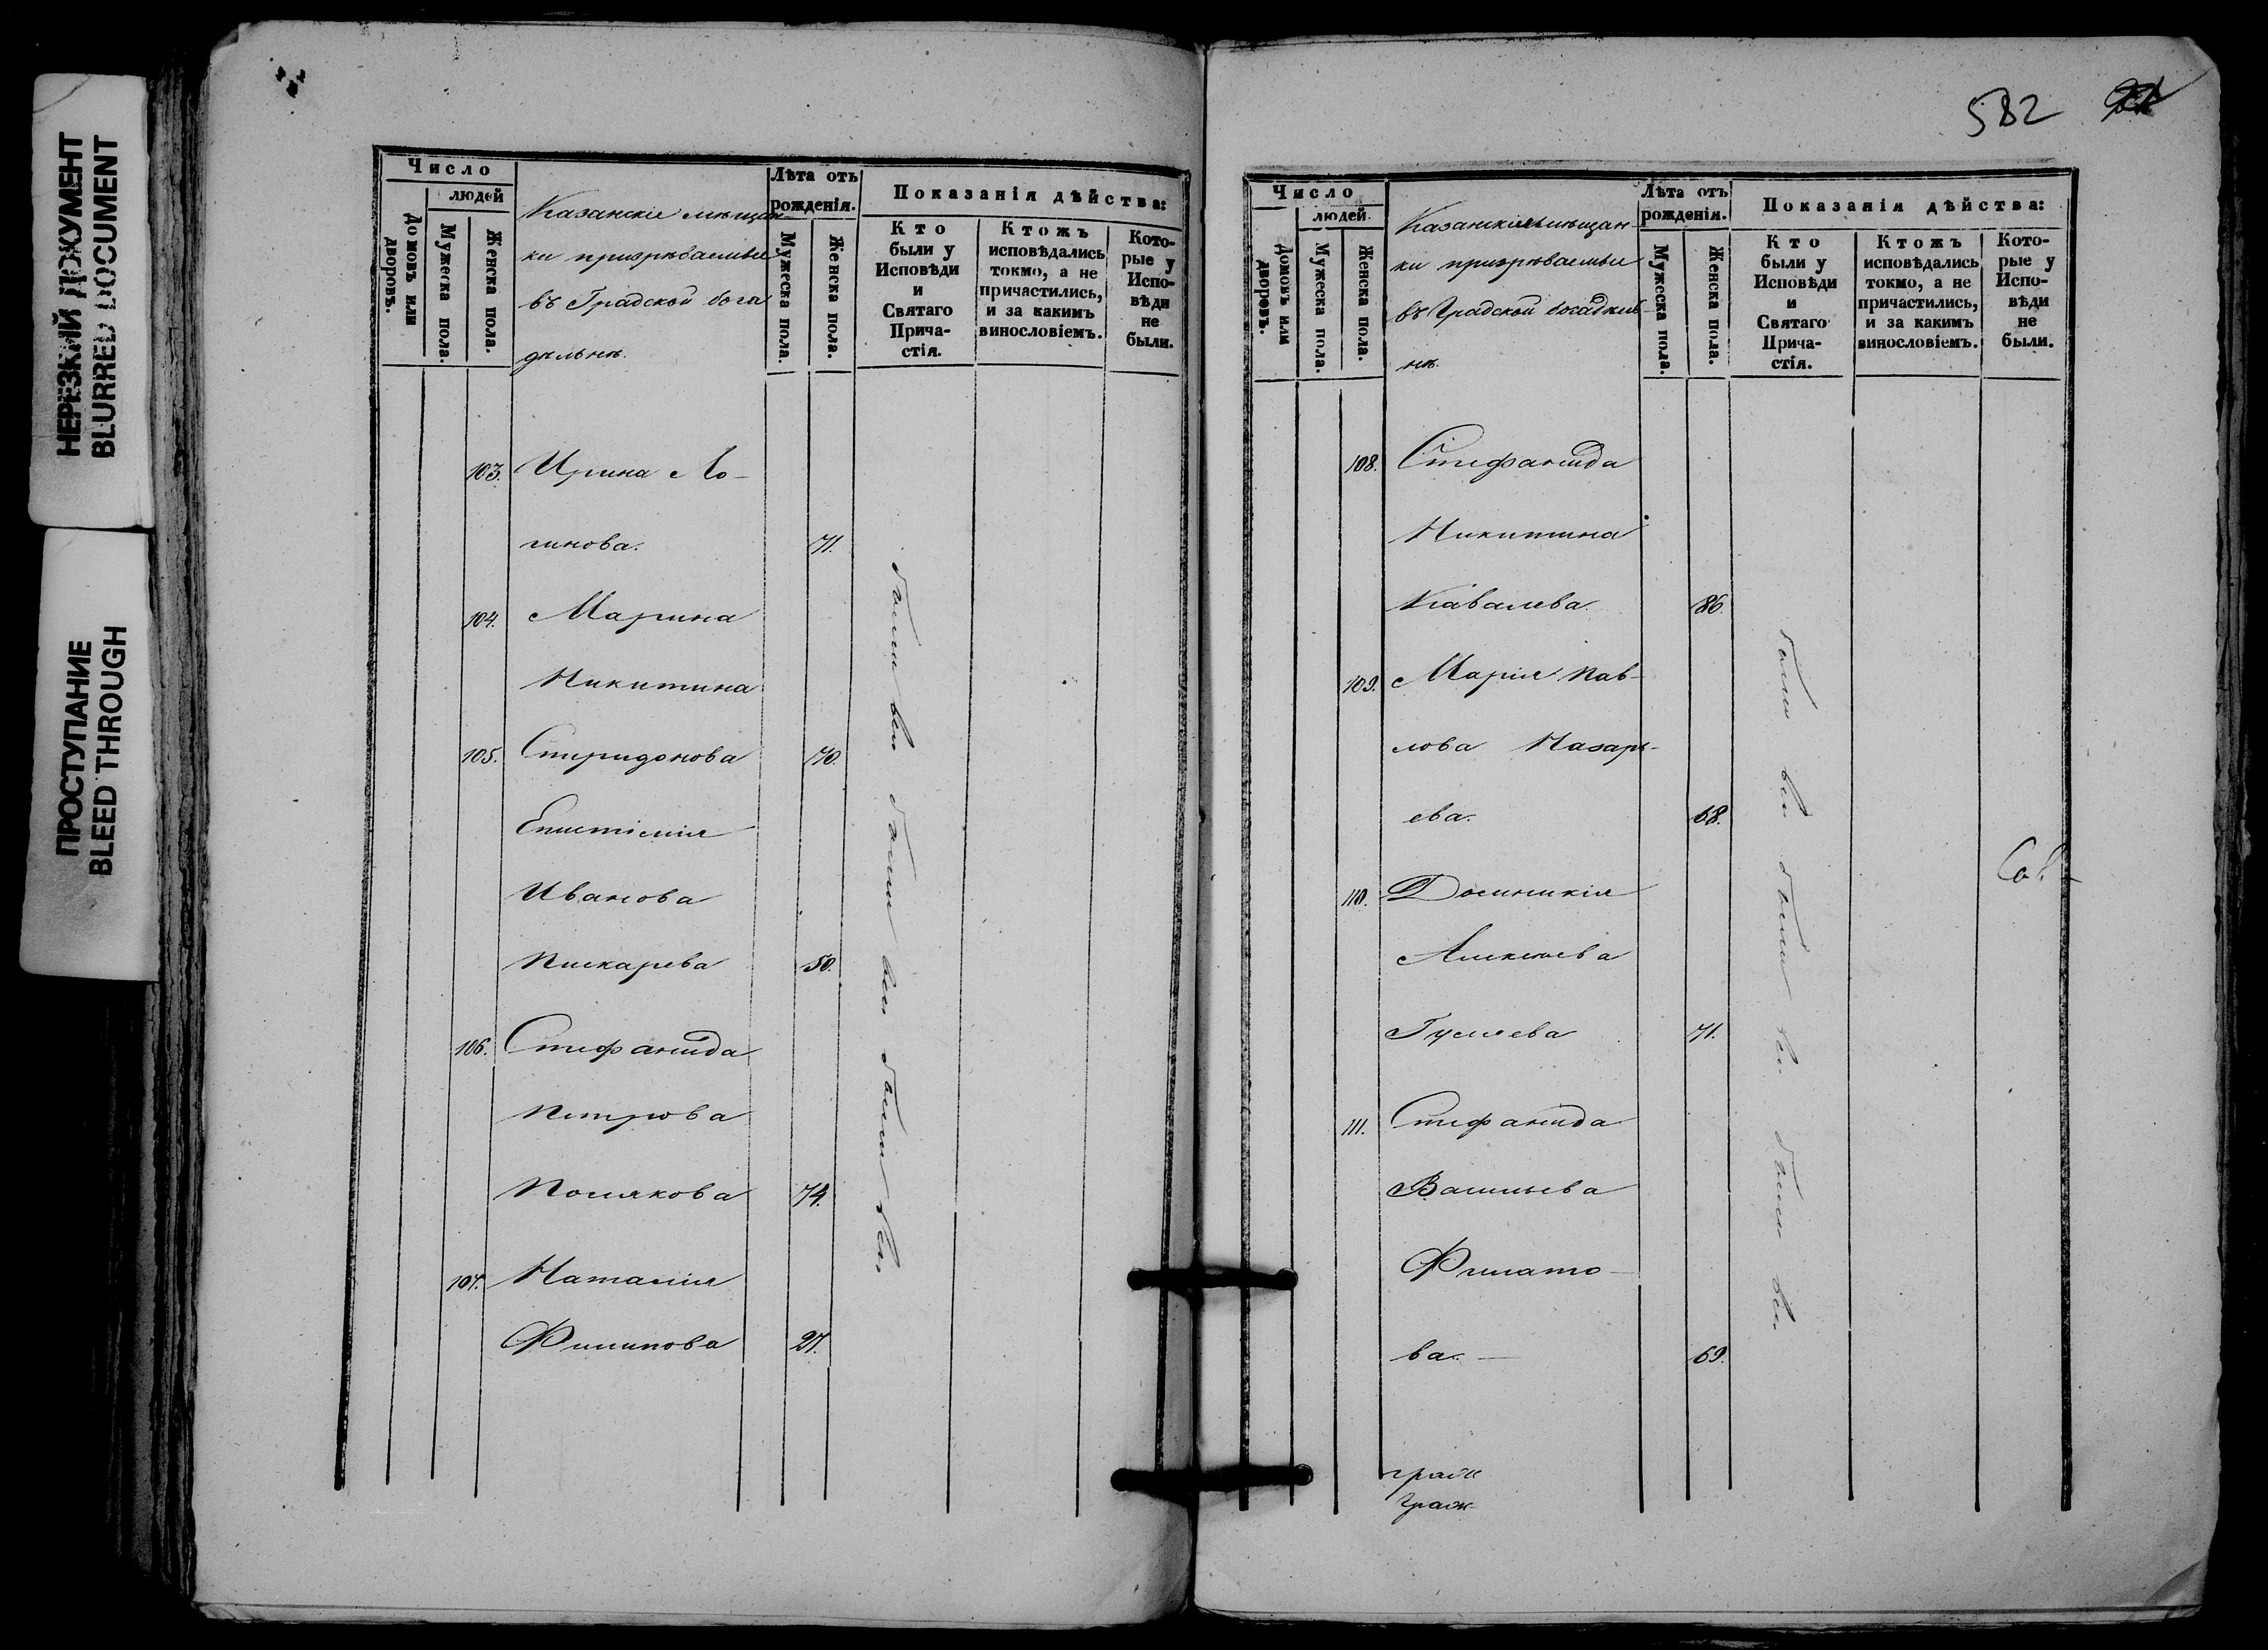 НЕРЕЗКИЙ ДОКУМЕНТ
BLURRED DOCUMENT
ПРОСТУПАНИЕ
BLEED THROUGH
Число
людей
Домовъ или дворовъ.
Мужеска пола.
Женска пола.
Казанскіе мѣщан-
ки призрѣваемые
въ Градской бога
дѣльнѣ.
Лѣта отъ
рожденія.
Мужеска пола.
Женска пола.
Показанія дѣйства:
Кто
были у
Исповѣди
и
Святаго
Прича-
стія.
Ктожъ
исповѣдались
токмо, а не
причастились,
и за какимъ
винословіемъ.
Кото-
рые у
Испо-
вѣди
не
были.
103. Ирина Ло-
гинова. 71.
104. Марина
Никитина
105. Спиридонова 70.
Епистімія
Иванова
Пискарева 50.
106. Стефанида
Петрова
Полякова 74.
107. Наталія
Филипова 27.
были всѣ были всѣ были всѣ
582
Число
людей.
Домовъ или дворовъ.
Мужеска пола.
Женска пола.
Казанскіе мѣщан-
ки призрѣваемые
въ Градской богадѣль-
нѣ.
Лѣта отъ
рожденія.
Мужеска пола.
Женска пола.
Показанія дѣйства:
Кто
были у
Исповѣди
и
Святаго
Прича-
стія.
Ктожъ
исповѣдались
токмо, а не
причастились,
и за какимъ
винословіемъ.
Кото-
рые у
Испо-
вѣди
не
были.
108. Стефанида
Никитина
Кавалева 86.
109. Марія Пав-
лова Назарь-
ева. 68.
110. Домникія
Алексѣева
Гуляева 71.
111. Стефанида
Васильева
Филато-
ва. 69.
были всѣ были всѣ были всѣ